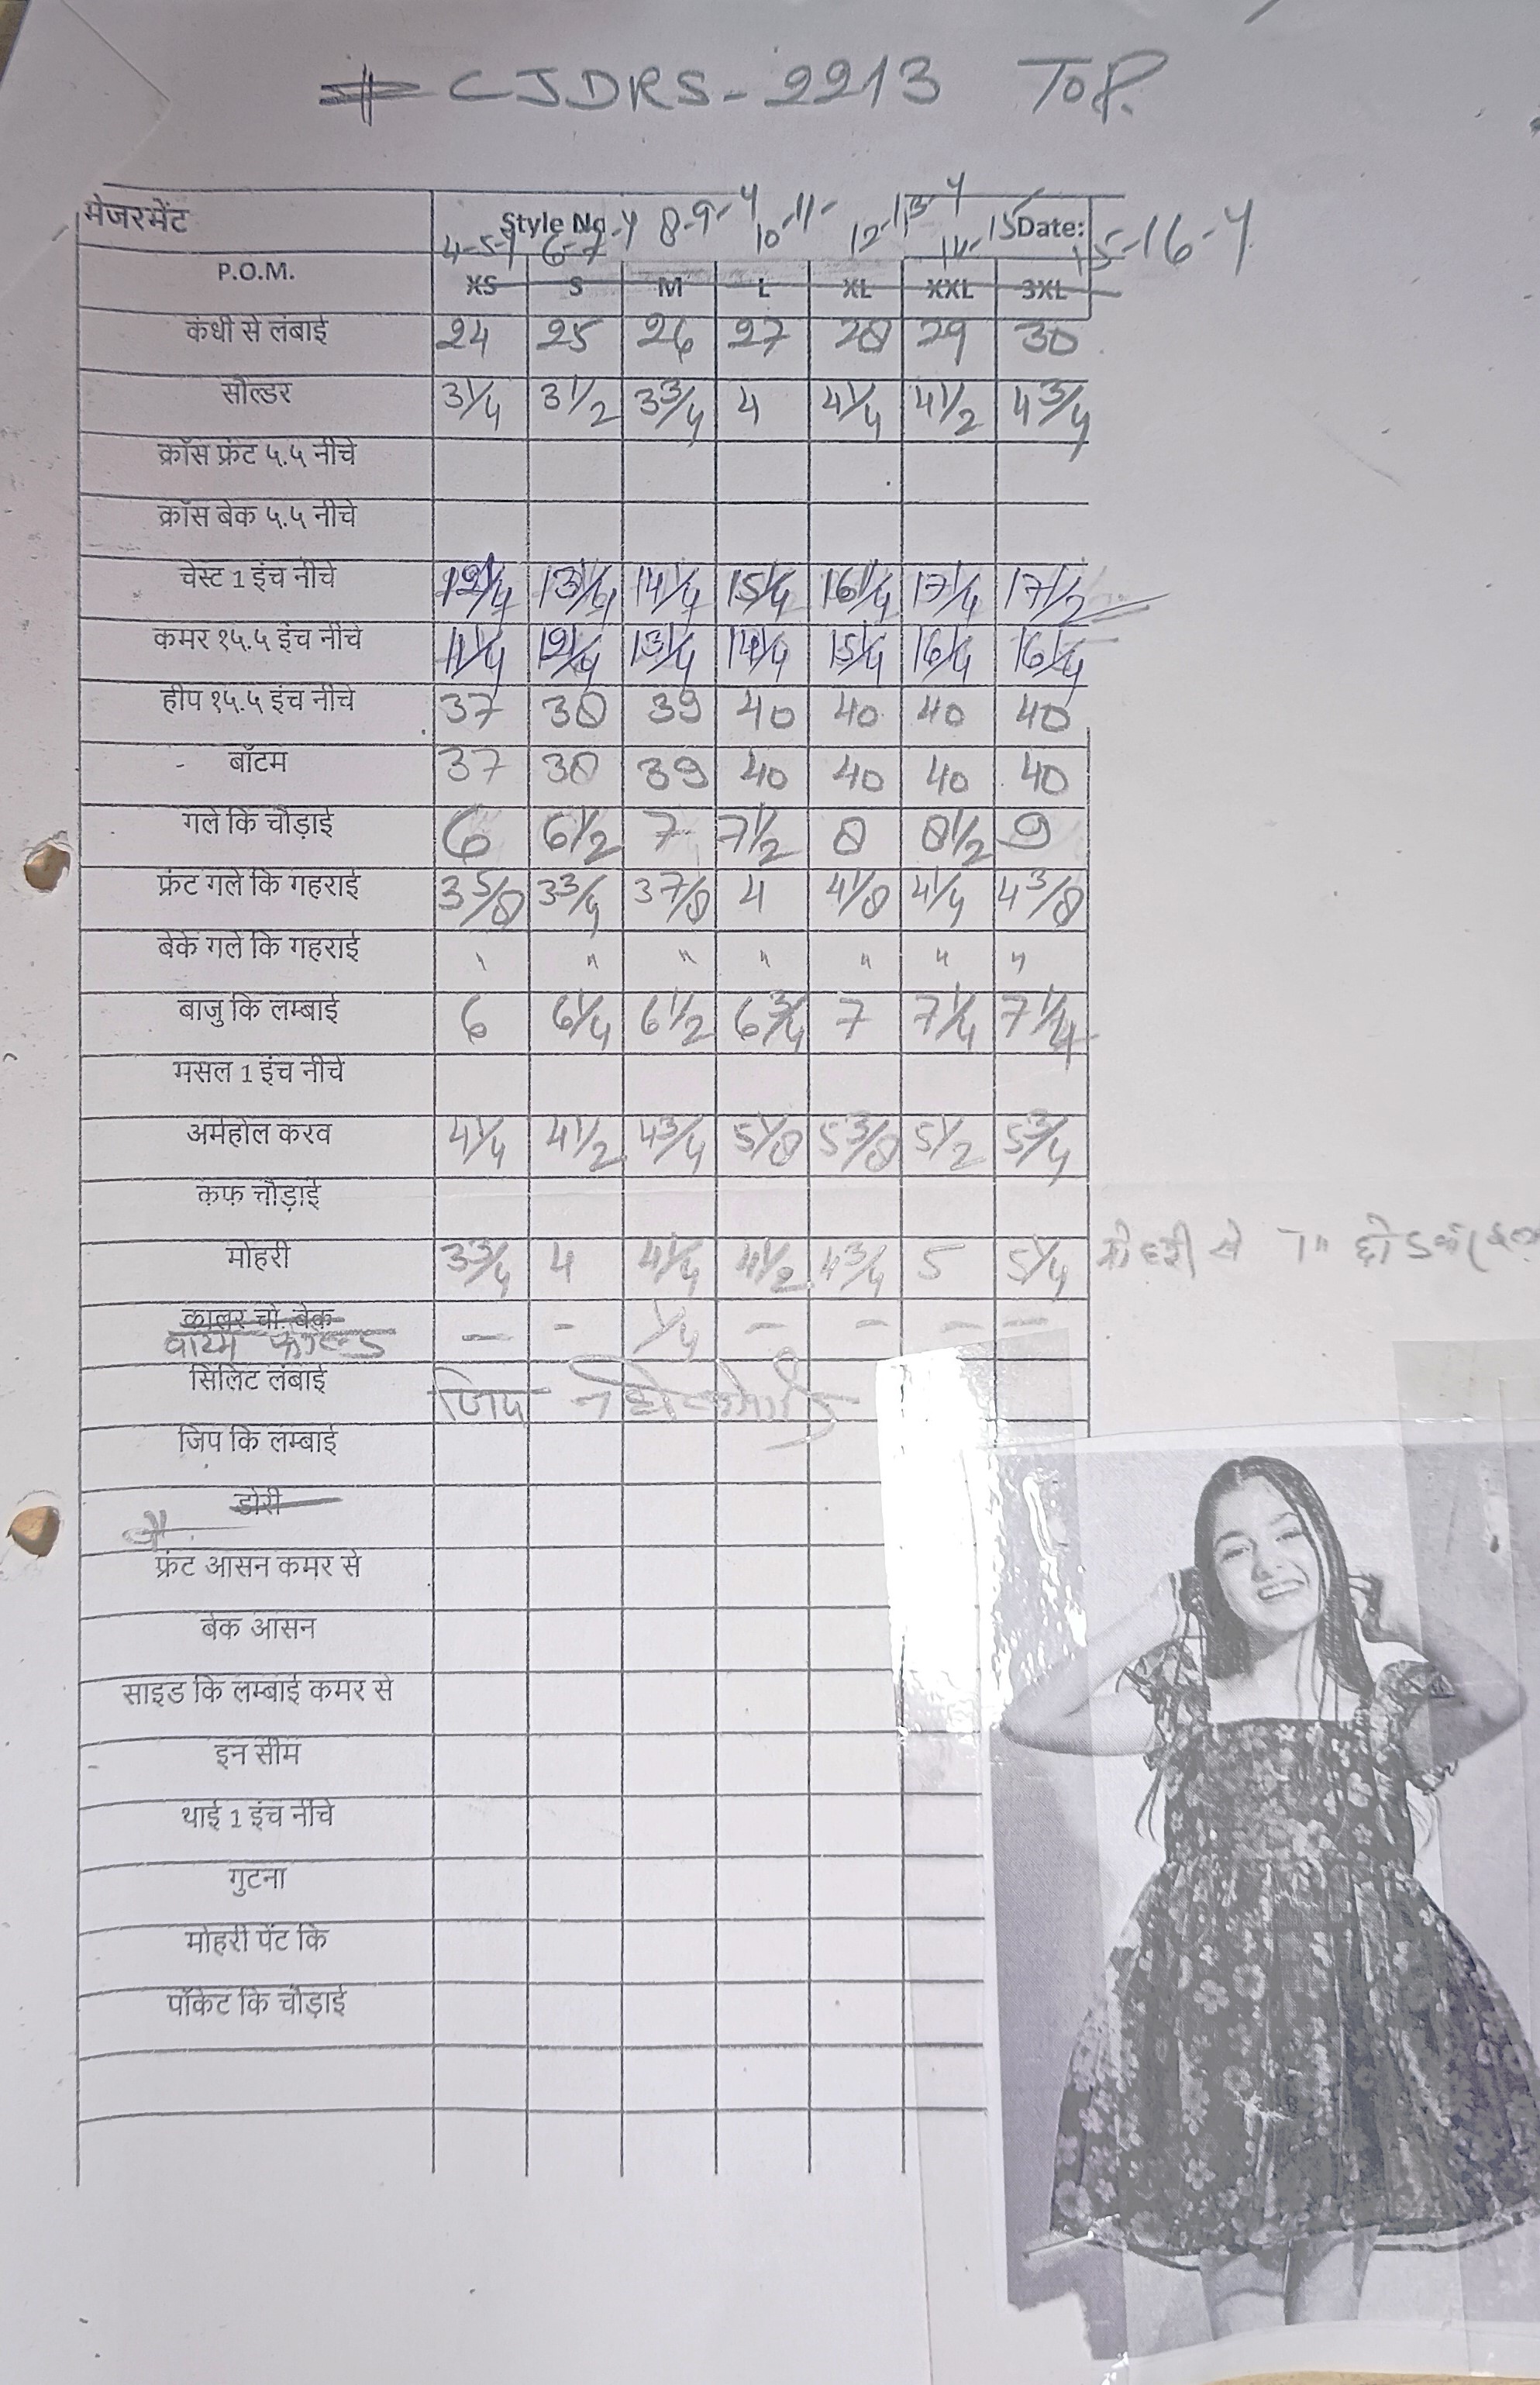 # CJDRS-2213 TOP.
मेजरमेंट Style No Date:
4-5-Y 6-7-Y 8-9-Y 10-11- 12-13-Y 14-15 15-16-Y
P.O.M. XS S M L XL XXL 3XL
कंधी से लंबाई 24 25 26 27 28 29 30
सोल्डर 3 1/4 3 1/2 3 3/4 4 4 1/4 4 1/2 4 3/4
क्रॉस फ्रंट ५.५ नीचे
क्रॉस बेक ५.५ नीचे
चेस्ट 1 इंच नीचे 12 1/4 13 1/4 14 1/4 15 1/4 16 1/4 17 1/4 17 1/2
कमर १५.५ इंच नीचे 11 1/4 12 1/4 13 1/4 14 1/4 15 1/4 16 1/4 16 1/4
हीप १५.५ इंच नीचे 37 38 39 40 40 40 40
बॉटम 37 38 39 40 40 40 40
गले कि चौड़ाई 6 6 1/2 7 7 1/2 8 8 1/2 9
फ्रंट गले कि गहराई 3 5/8 3 3/4 3 7/8 4 4 1/8 4 1/4 4 3/8
बेके गले कि गहराई " " " " " " "
बाजु कि लम्बाई 6 6 1/4 6 1/2 6 3/4 7 7 1/4 7 1/4
मसल 1 इंच नीचे
अर्महोल करव 4 1/4 4 1/2 4 3/4 5 1/8 5 3/8 5 1/2 5 3/4
कफ़ चौड़ाई
मोहरी 3 3/4 4 4 1/4 4 1/2 4 3/4 5 5 1/4 मोहरी से 1" छोडकर
कालर चो. बेक
बाटम फोल्ड - - 1/4 - - - -
सिलिट लंबाई जिप नही लगेगी
जिप कि लम्बाई
डोरी
फ्रंट आसन कमर से
बेक आसन
साइड कि लम्बाई कमर से
इन सीम
थाई 1 इंच नीचे
गुटना
मोहरी पेंट कि
पॉकेट कि चौड़ाई